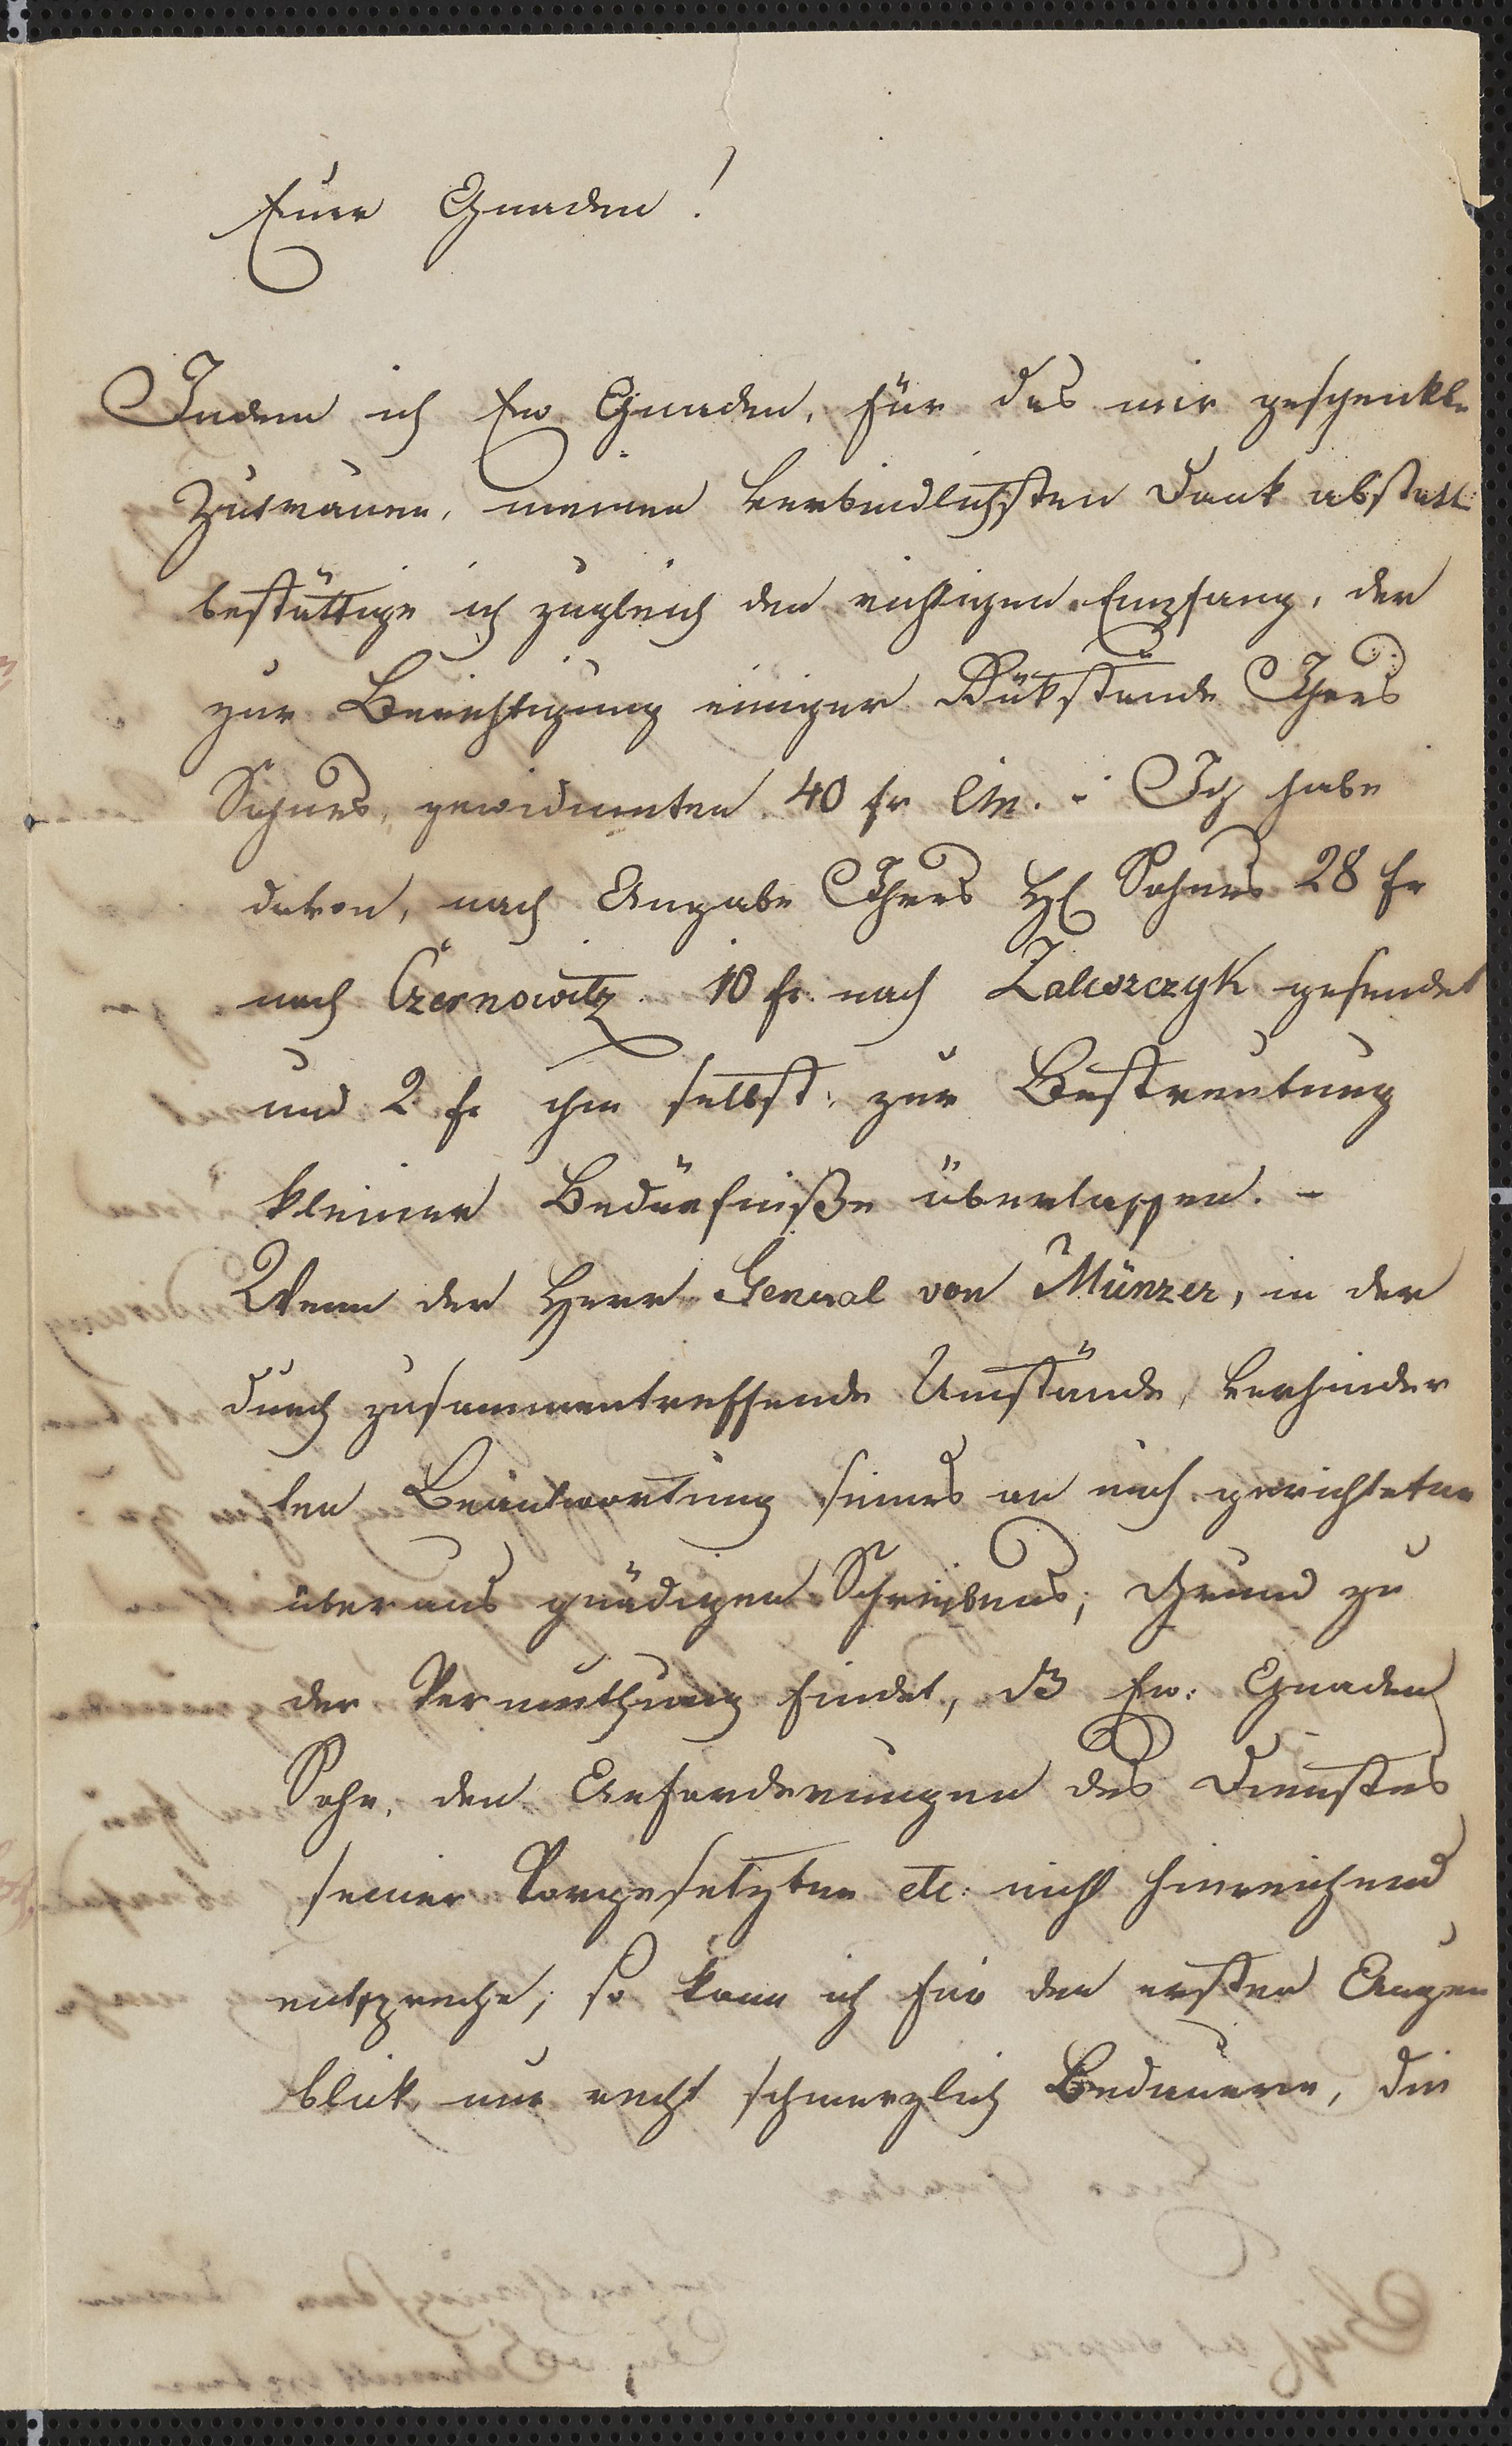 Euer Gnaden!
Indem ich Ew Gnaden, für das mir geschenkte
Zutrauen, meinen verbindlichsten Dank abstatte
bestättige ich zugleich den richtigen Empfang, der
zur Berichtigung einiger Rükstände Ihres
Sohnes, gewidmeten 40 fr CM. - Ich habe
davon, nach Angabe Ihres H Sohnes 28 fr
nach Czernowitz 10 fr. nach Zaleszczyk gesendet
und 2 fr ihm selbst, zur Bestreutung
kleiner Bedürfniße überlassen. -
Wenn der Herr General von Münzer, in der
durch zusammentreffende Umstände, verhinder
ten Beantwortung seines an mich gerichteten
überaus gnädigen Schreibens; Grund zu
der Vermuthung findet, dß Ew: Gnaden
Sohn, den Anforderungen des Dienstes
seiner Vorgesetzten etc: nicht hinreichend
entspreche; so kann ich für den ersten Augen
blick nur recht schmerzlich Bedauern, die